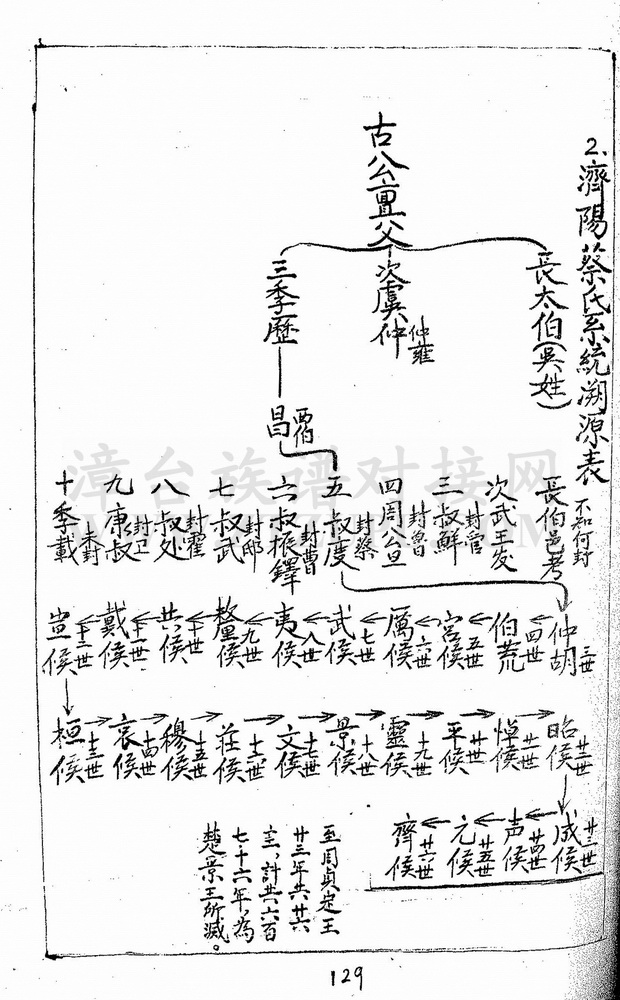 2.濟陽蔡氏系統溯源表
古公亶父
長太伯(吳姓)
次虞仲 仲雍
三季歷
昌 西伯
長伯邑考 不知何封
次武王发
三叔鮮 封管
四周公旦 封魯
五叔度 封蔡
六叔振鐸 封曹
七叔武 封郕
八叔处 封霍
九康叔 封卫
十季載 未封
仲胡 三世
伯荒 四世
宮侯 五世
厲侯 六世
武侯 七世
夷侯 八世
釐侯 九世
共侯 十世
戴侯 十一世
宣侯 十二世
桓侯 十三世
哀侯 十四世
穆侯 十五世
莊侯 十六世
文侯 十七世
景侯 十八世
靈侯 十九世
平侯 廿世
悼侯 廿一世
昭侯 廿二世
成侯 廿三世
声侯 廿四世
元侯 廿五世
齊侯 廿六世
至周貞定王
廿三年共廿六
世，計共六百
七十六年，為
楚景王所滅。
129
漳台族譜对接网